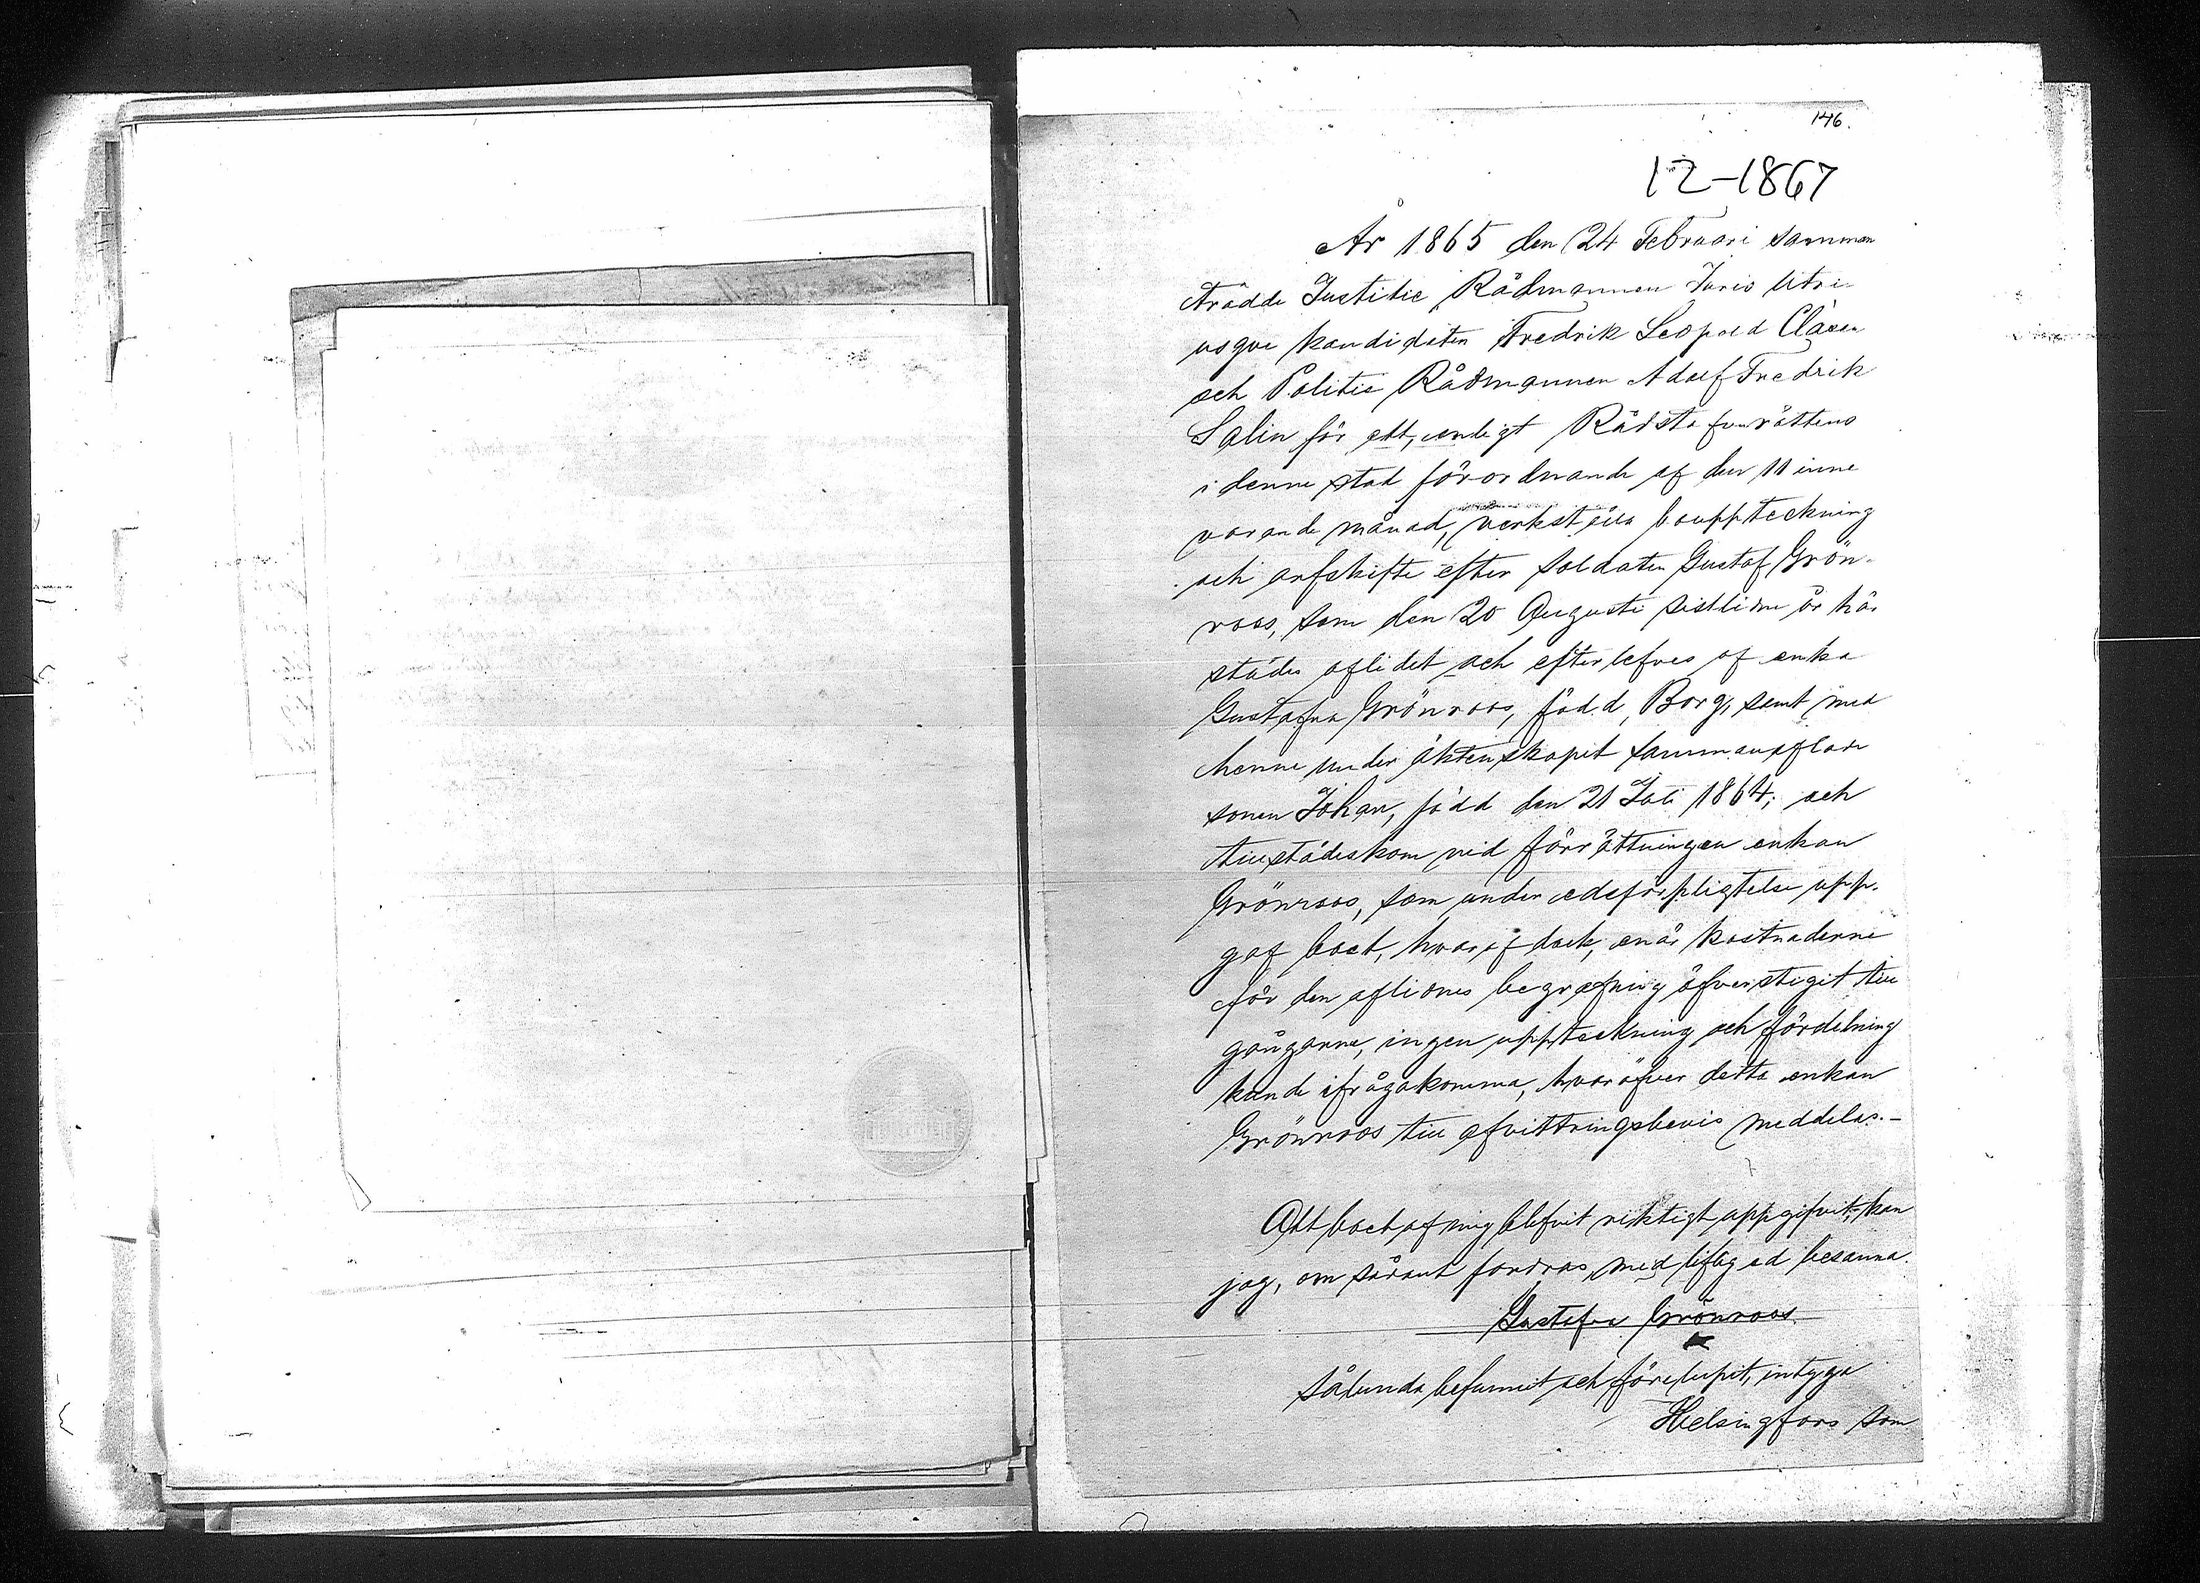 146.
12-1867
År 1865 den 24 Februari samman
trädde Justitie Rådmannen Juris Utri-
usque kandidaten Fredrik Leopold Clásen
och Politie Rådmannen Adolf Fredrik
Salin för att, enligt Rådstufvurättens
i denne stad förordnande af den 11 inne
varande månad, verkställa bouppteckning
och arfskifte efter Soldaten Gustaf Grön-
roos, som den 20 Augusti sistlidne år här
städes aflidet och efterlefves af enka
Gustafva Grönroos, född Borg, samt med
henne under äktenskapet sammanaflade
sonen Johan, född den 21 Juli 1864; och
tillstädeskom vid förrättningen enkan
Grönroos, som under edsförpligtelse upp-
gaf boet, hvaraf dock, enär kostnaderne
för den aflidnes begrafning öfverstigit till
gångarne, ingen uppteckning och fördelning
kunde ifrågakomma, hvaröfver detta enkan
Grönroos till afvittringsbevis meddelas.-
Att boet af mig blifvit riktigt uppgifvit, kan
jag, om sådant fordras med liflig ed besanna.
Gustafva Grönroos
Sålunda befunnit och förelupit, intyga
Helsingfors som